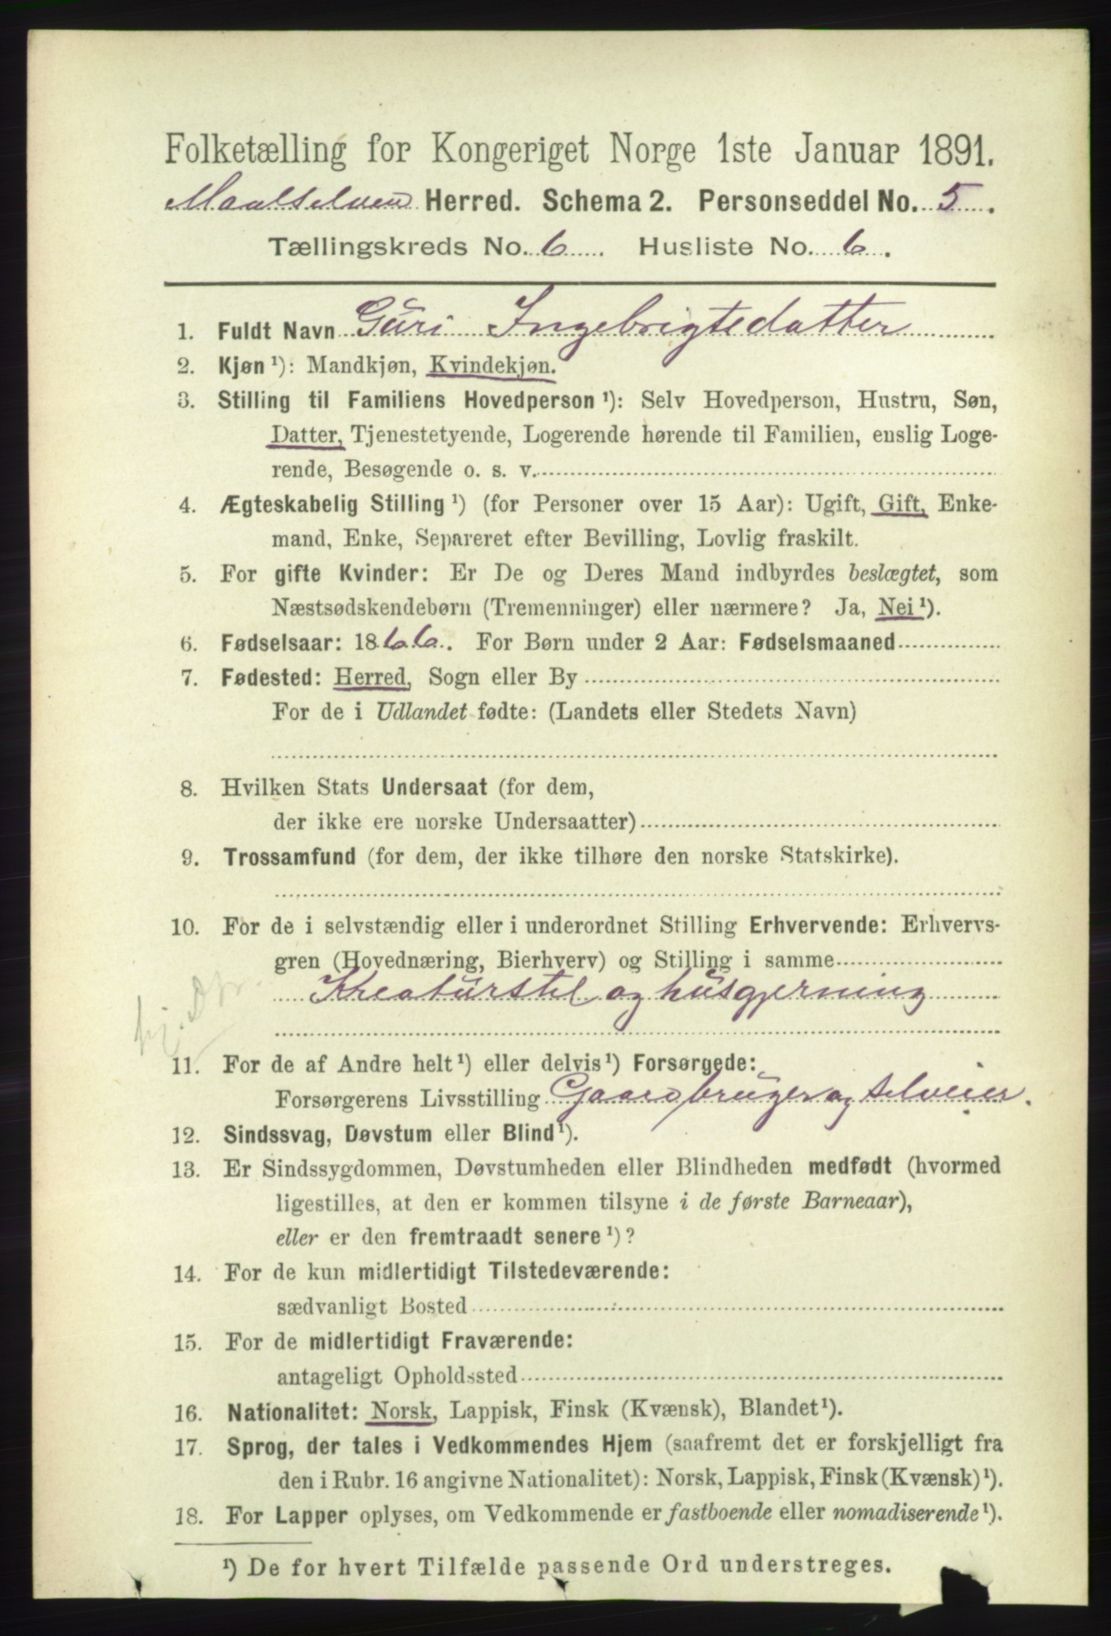 Folketælling for Kongeriget Norge 1ste Januar 1891.
Maalselven Herred. Schema 2. Personseddel No. 5.
Tællingskreds No. 6. Husliste No. 6.
1. Fuldt Navn Guri Ingebrigtsdatter
2. Kjøn ¹): Mandkjøn, Kvindekjøn.
3. Stilling til Familiens Hovedperson ¹): Selv Hovedperson, Hustru, Søn,
Datter, Tjenestetyende, Logerende hørende til Familien, enslig Loge-
rende, Besøgende o. s. v.
4. Ægteskabelig Stilling ¹) (for Personer over 15 Aar): Ugift, Gift, Enke-
mand, Enke, Separeret efter Bevilling, Lovlig fraskilt.
5. For gifte Kvinder: Er De og Deres Mand indbyrdes beslægtet, som
Næstsødskendebørn (Tremenninger) eller nærmere? Ja, Nei ¹).
6. Fødselsaar: 1866. For Børn under 2 Aar: Fødselsmaaned
7. Fødested: Herred, Sogn eller By
For de i Udlandet fødte: (Landets eller Stedets Navn)
8. Hvilken Stats Undersaat (for dem,
der ikke ere norske Undersaatter)
9. Trossamfund (for dem, der ikke tilhøre den norske Statskirke).
10. For de i selvstændig eller i underordnet Stilling Erhvervende: Erhvervs-
gren (Hovednæring, Bierhverv) og Stilling i samme
Kreaturstel og husgjerning
11. For de af Andre helt ¹) eller delvis ¹) Forsørgede:
Forsørgerens Livsstilling Gaardbruger og selveier.
12. Sindssvag, Døvstum eller Blind ¹).
13. Er Sindssygdommen, Døvstumheden eller Blindheden medfødt (hvormed
ligestilles, at den er kommen tilsyne i de første Barneaar),
eller er den fremtraadt senere ¹)?
14. For de kun midlertidigt Tilstedeværende:
sædvanligt Bosted
15. For de midlertidigt Fraværende:
antageligt Opholdssted
16. Nationalitet: Norsk, Lappisk, Finsk (Kvænsk), Blandet ¹).
17. Sprog, der tales i Vedkommendes Hjem (saafremt det er forskjelligt fra
den i Rubr. 16 angivne Nationalitet): Norsk, Lappisk, Finsk (Kvænsk) ¹).
18. For Lapper oplyses, om Vedkommende er fastboende eller nomadiserende ¹).
¹) De for hvert Tilfælde passende Ord understreges.